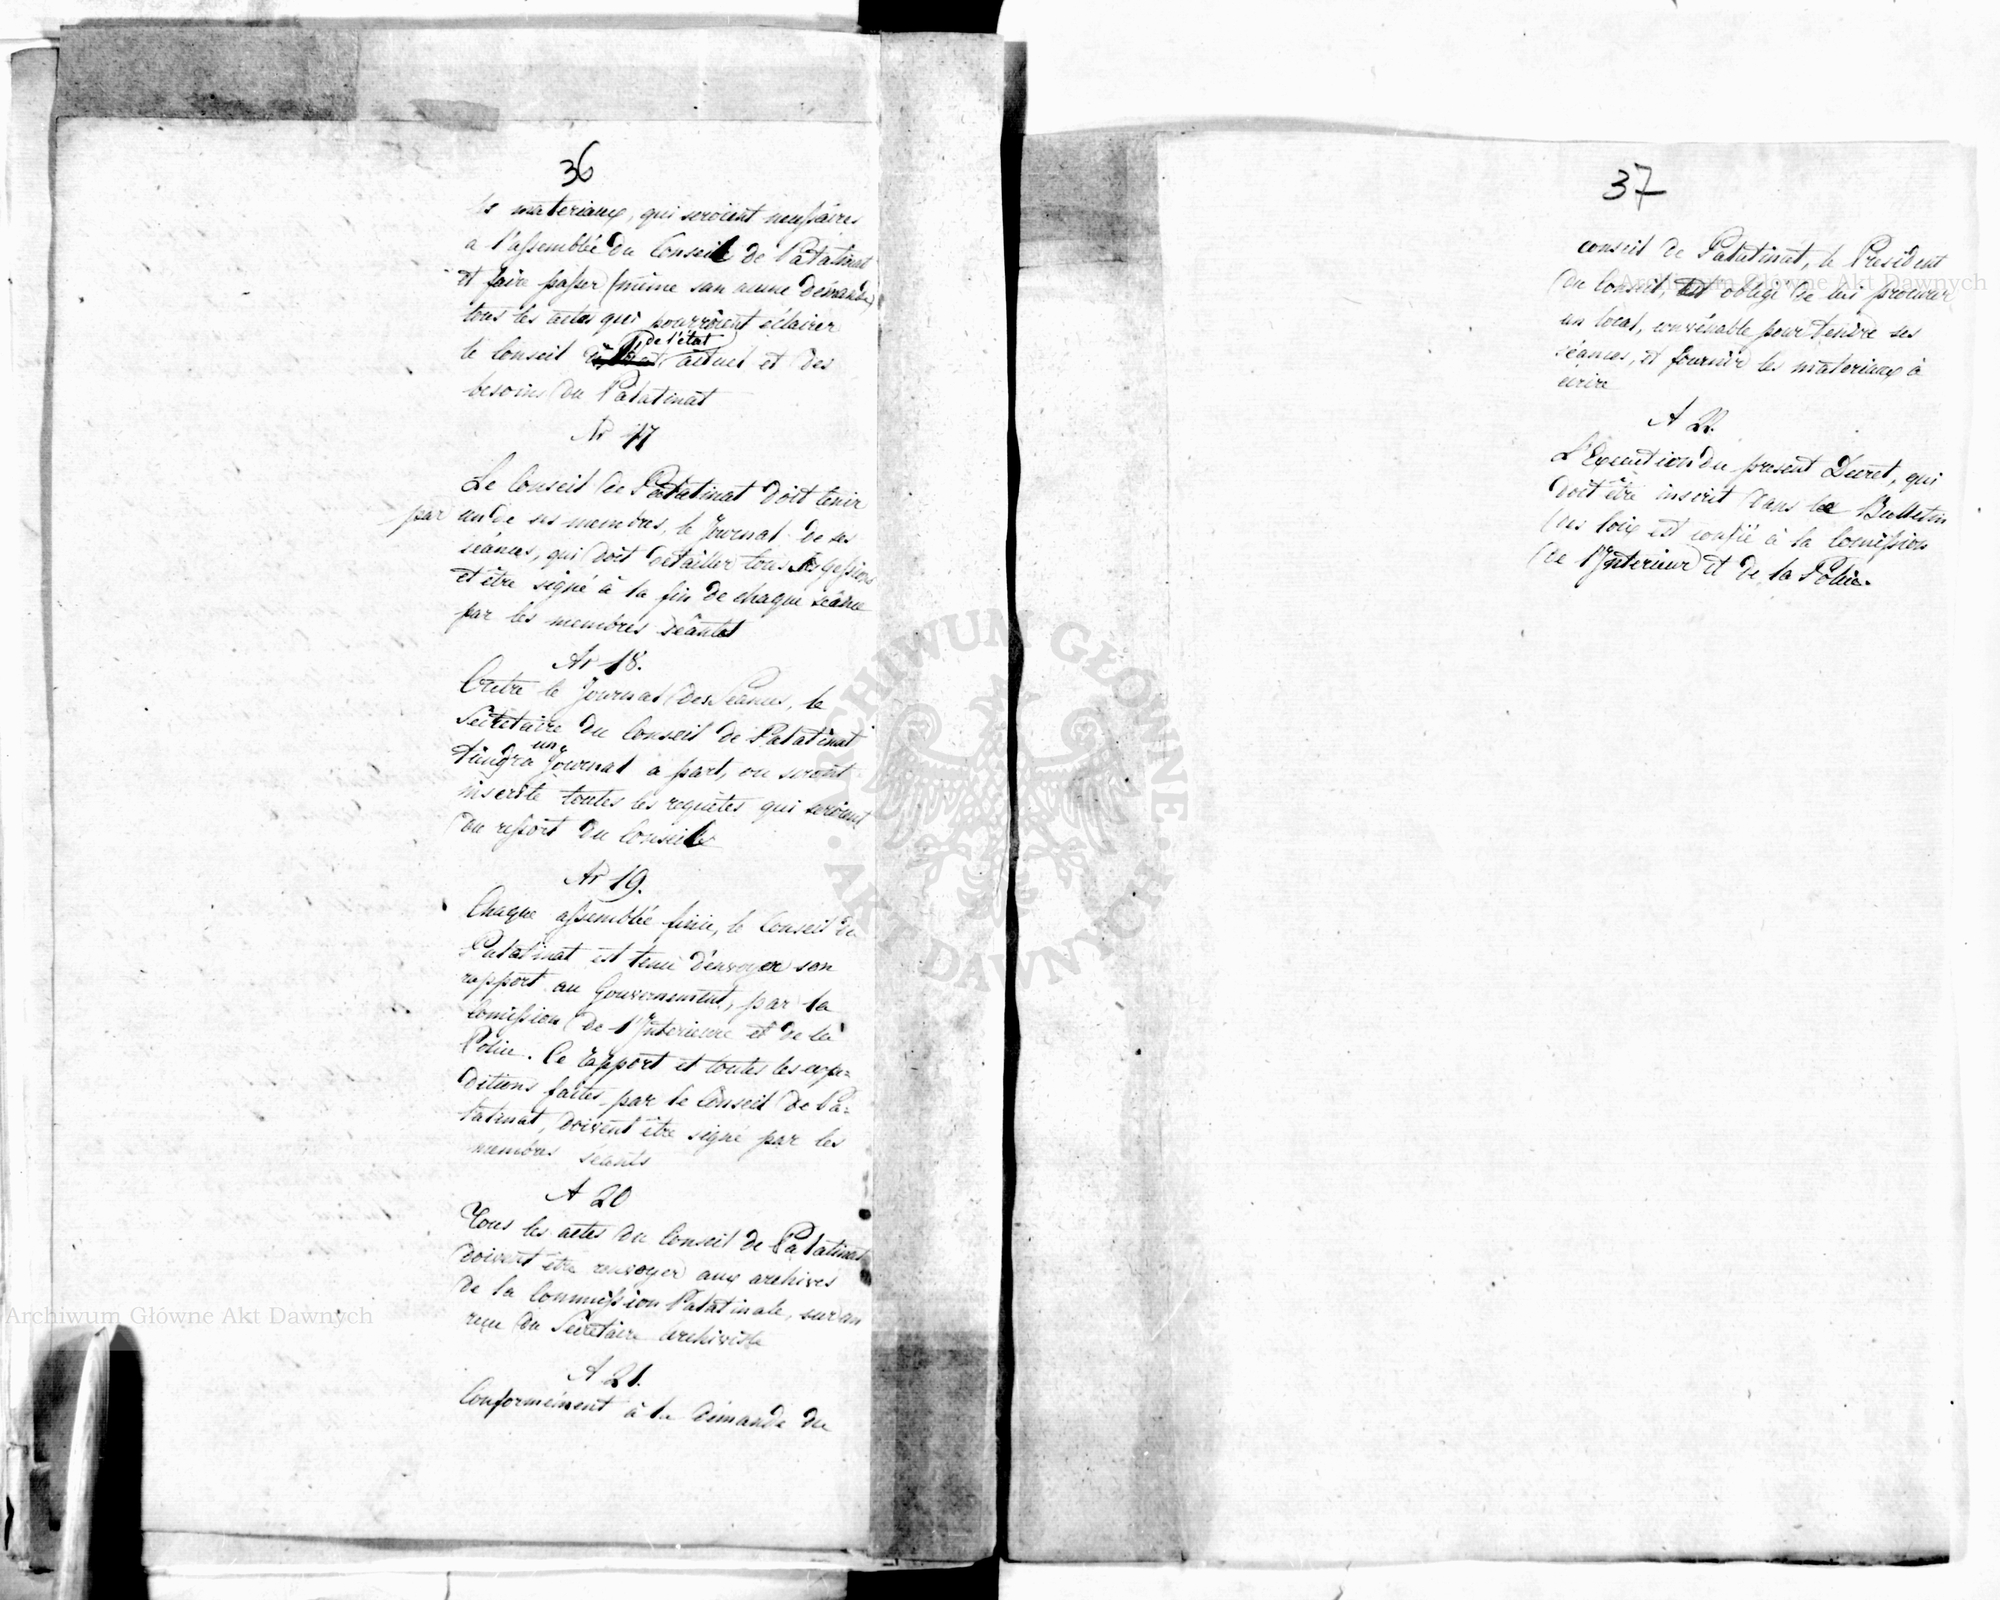 36
les materiaux, qui seroient necessaires
a l'assemblée du Conseil de Palatinat
et faire passer (même san aucune demande)
tous les actes qui pourroient eclairer
de l'état
le Conseil actuel et des
besoins du Palatinat
Ar 17
Le Conseil de Palatinat doit tenir
par un de ses membres, le Journal de ses
séances, qui doit detailler tous
et être signé à la fin de chaque séance
par les membres séants
Ar 18.
Outre le Journal des seances, le
Secretaire du Conseil de Palatinat
un
tiendra Journal a part, ou seront
inscrite toutes les requêtes qui seroient
du ressort du Conseil
Ar 19.
Chaque assemblée finie, le Conseil du
Palatinat est tenu d'envoyer son
rapport au Gouvernement, par la
Comission de l'Interieure et de la
Police. Ce rapport et toutes les expe=
ditions faites par le Conseil de Pa=
latinat, doivent être signé par les
membres seants
A 20
Tous les actes du Conseil de Palatinat
doivent être renvoyer aux archives
de la Commission Palatinale, sur un
reçu du Secretaire Archiviste
A 21.
Conformément à la demande du
37
conseil de Palatinat, le President
du Conseil, est obligé de lui procurer
un local, convénable pour tendre ses
séances, et fournir les materiaux à
écrire
A 22.
L'Execution du present Decret, qui
doit être inscrit dans le Bulletin
des loix est confié à la Comission
de l'Interieur et de la Police.
Archiwum Główne Akt Dawnych
Archiwum Główne Akt Dawnych
ARCHIWUM GŁÓWNE · AKT DAWNYCH ·